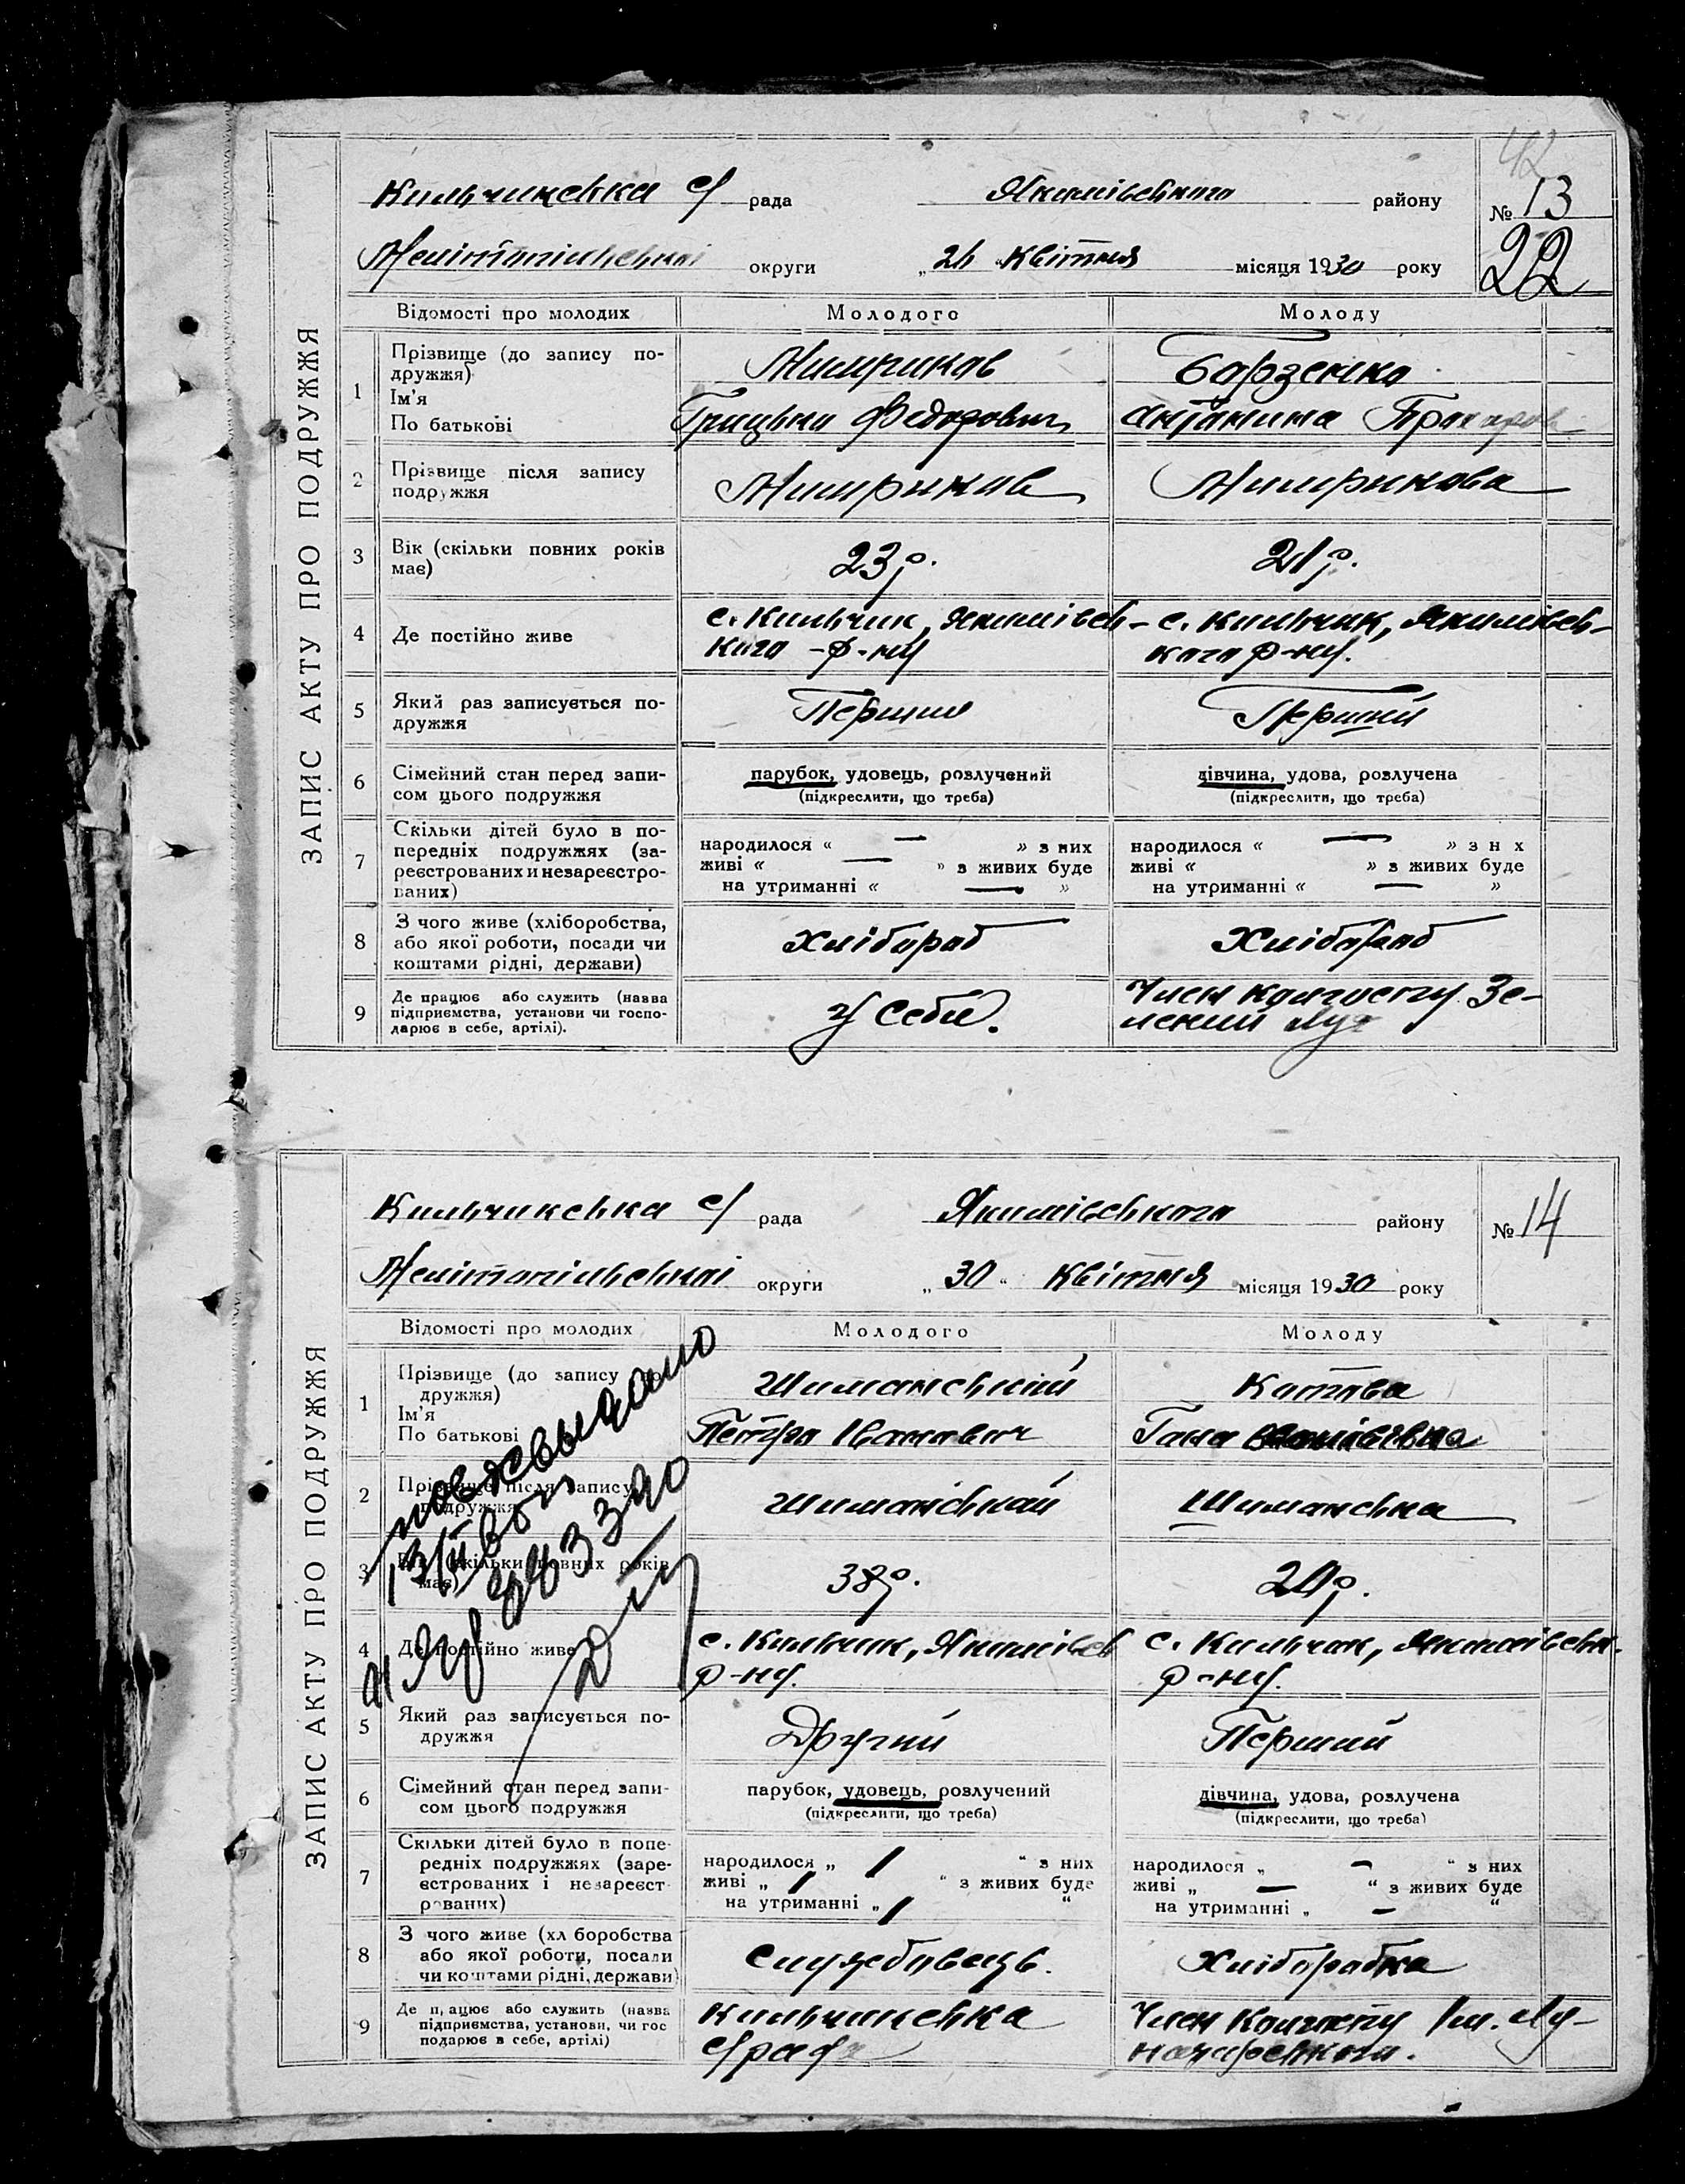 42
Кильчикська с/ рада Якимівського району № 13
Мелітопільської округи „26 " Квітня місяця 1930 року 22
ЗАПИС АКТУ ПРО ПОДРУЖЖЯ
Відомості про молодих Молодого Молоду
1 Прізвище (до запису по-
дружжя)
Ім'я
По батькові
Грицько Федорович
Борзенко
Антонина
2 Прізвище після запису
подружжя
3 Вік (скільки повних років
має)
23 р. 21 р.
4 Де постійно живе
с. Кильчик, Якимівсь-
кого -р-ну
с. Кильчик, Якимівсь-
кого р-ну.
5 Який раз записується по-
дружжя
Перший Перший
6 Сімейний стан перед запи-
сом цього подружжя
парубок, удовець, розлучений
(підкреслити, що треба)
дівчина, удова, розлучена
(підкреслити, що треба)
7 Скільки дітей було в по-
передніх подружжях (за-
реєстрованих и незареєстро-
ваних)
народилося « — » з них
живі « — » з живих буде
на утриманні « — »
народилося « — » з н х
живі « » з живих буде
на утриманні « — »
8 З чого живе (хліборобства,
або якої роботи, посади чи
коштами рідні, держави)
Хлібороб Хлібороб
9 Де працює або служить (назва
підприємства, установи чи госпо-
дарює в себе, артілі).
У себе.
Член колгоспу Зе-
лений Луг
Кильчикська с/ рада Якимівського району № 14
Мелітопільської округи „ 30 " Квітня місяця 1930 року
ЗАПИС АКТУ ПРО ПОДРУЖЖЯ
Відомості про молодих Молодого Молоду
1 Прізвище (до запису по-
дружжя)
Ім'я
По батькові
Шиманський
Петро Іванович
Котова
Гана
2 Прізвище після запису
подружжя
Шиманський Шиманська
3 Вік (скільки повних років
має)
38 р. 21 р.
4 Де постійно живе
с. Кильчик, Якимівськ
р-ну.
с. Кильчик, Якимівськ.
р-ну.
5 Який раз записується по-
дружжя
Другий Перший
6 Сімейний стан перед запи-
сом цього подружжя
парубок, удовець, розлучений
(підкреслити, що треба)
дівчина, удова, розлучена
(підкреслити, що треба)
7 Скільки дітей було в попе-
редніх подружжях (заре-
єстрованих і незареєст-
рованих)
народилося „ 1 “ з них
живі „ 1 “ з живих буде
на утриманні „ 1 “
народилося „ – “ з них
живі „ – “ з живих буде
на утриманні „ – “
8 З чого живе (хл боробства
або якої роботи, посади
чи коштами рідні, держави)
Службовець. Хліборобка
9 Де п, ацює або служить (назва
підприємства, установи, чи гос
подарює в себе, артілі)
Кильчикська
с/рада
Член Колгоспу Ім. Лу-
начарського.